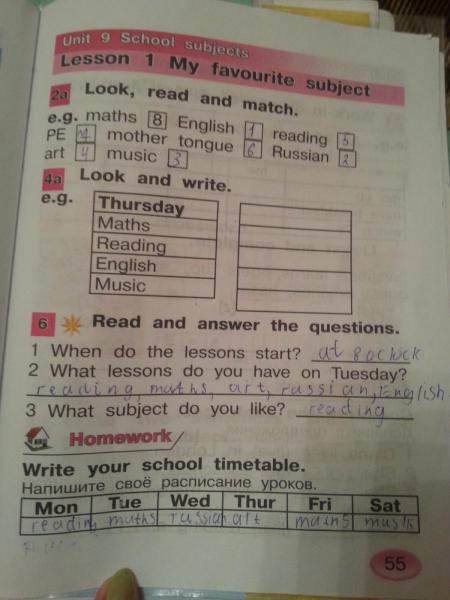 Unit 9 School subjects
Lesson 1 My favourite subject
2a Look, read and match.
e.g. maths 8 English 1 reading 5
PE 7 mother tongue 6 Russian 2
art 4 music 3
4a Look and write.
e.g.
Thursday
Maths
Reading
English
Music
6 Read and answer the questions.
1 When do the lessons start? at 8 o'clock
2 What lessons do you have on Tuesday?
reading, maths, art, russian, English
3 What subject do you like? reading
Homework
Write your school timetable.
Напишите своё расписание уроков.
Mon Tue Wed Thur Fri Sat
reading maths russian art maths music
55